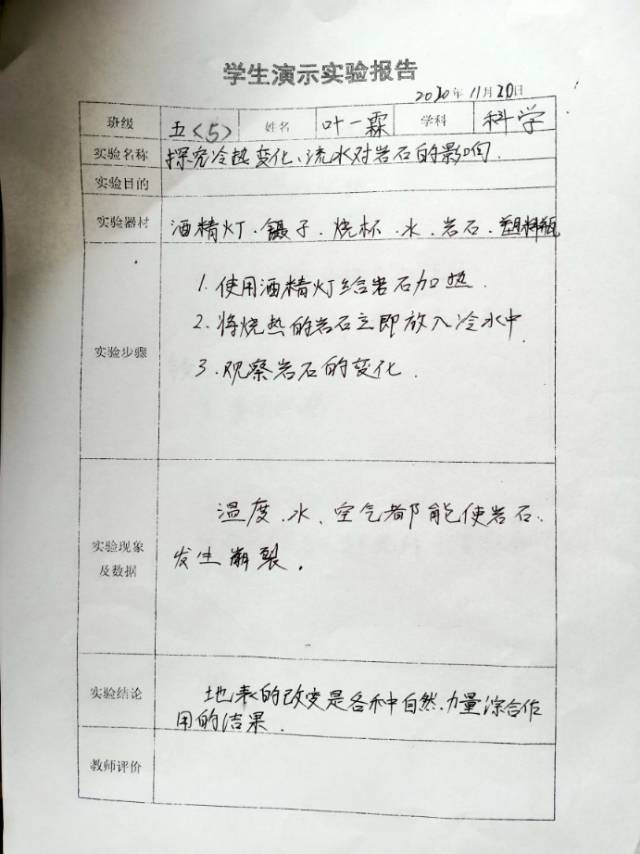 学生演示实验报告
2020年11月20日
班级 五<5> 姓名 叶一霖 学科 科学
实验名称 探究冷热变化、流水对岩石的影响.
实验目的
实验器材 酒精灯.镊子.烧杯.水.岩石.塑料瓶
1.使用酒精灯给岩石加热.
2.将烧热的岩石立即放入冷水中.
实验步骤
3.观察岩石的变化.
温度.水、空气都能使岩石.
实验现象
发生崩裂.
及数据
实验结论 地表的改变是各种自然力量综合作
用的结果.
教师评价